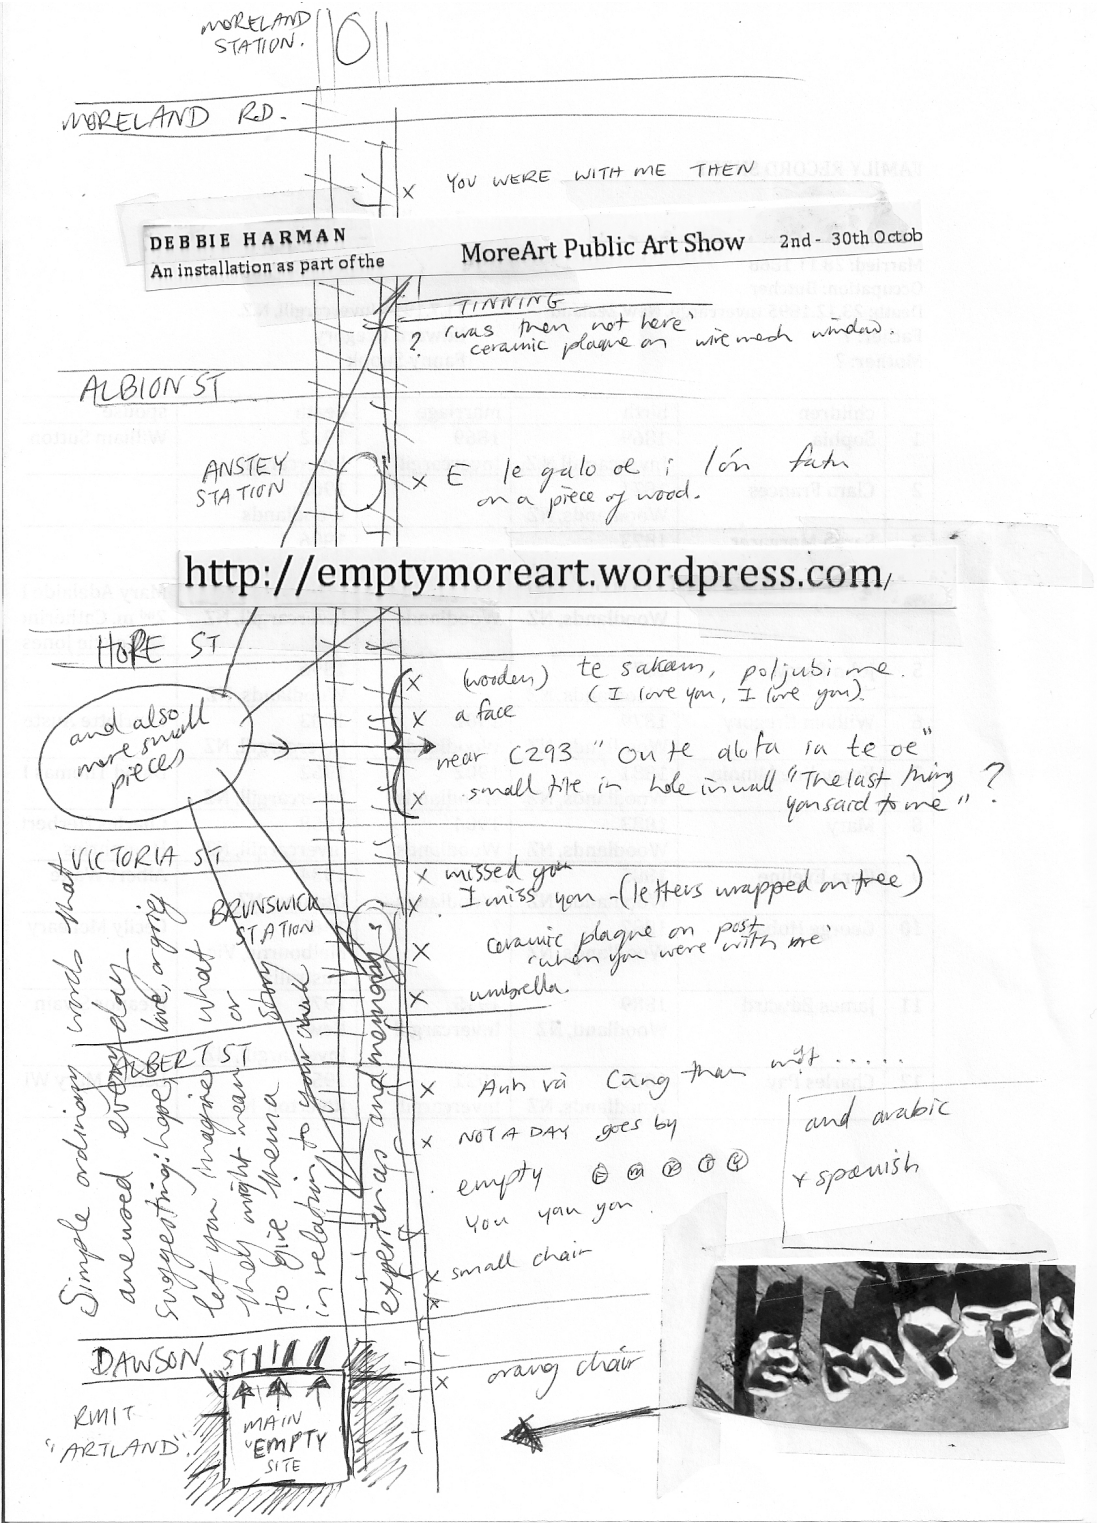 MORELAND
STATION.
MORELAND RD.
YOU WERE WITH ME THEN
DEBBIE HARMAN
An installation as part of the
MoreArt Public Art Show
2nd - 30th Octob
TINNING
? 'was then not here'
ceramic plaque on wire mesh window.
ALBION ST
ANSTEY
STATION
x E le galo oe i lo'u fatu
on a piece of wood.
http://emptymoreart.wordpress.com/
HOPE ST
and also
more small
pieces
x (wooden) te sakam, poljubi me.
(I love you, I love you).
x a face
near C293 "Ou te alofa ia te oe"
x small tile in hole in wall "The last thing
you said to me" ?
VICTORIA ST
x missed you
x I miss you - (letters wrapped on tree)
BRUNSWICK
STATION
x ceramic plaque on post
"when you were with me
x umbrella.
ALBERT ST
x Anh và Căng
x NOT A DAY goes by
empty E M P T Y
You you you.
x small chair
and arabic
+ spanish
Simple ordinary words that
are used every day
suggesting: hope, love,
let you imagine what
they might mean or
to give them a story
in relation to your own
experiences and memories
DAWSON ST
x orang chair
RMIT
"ARTLAND".
MAIN
"EMPTY"
SITE
EMPTY